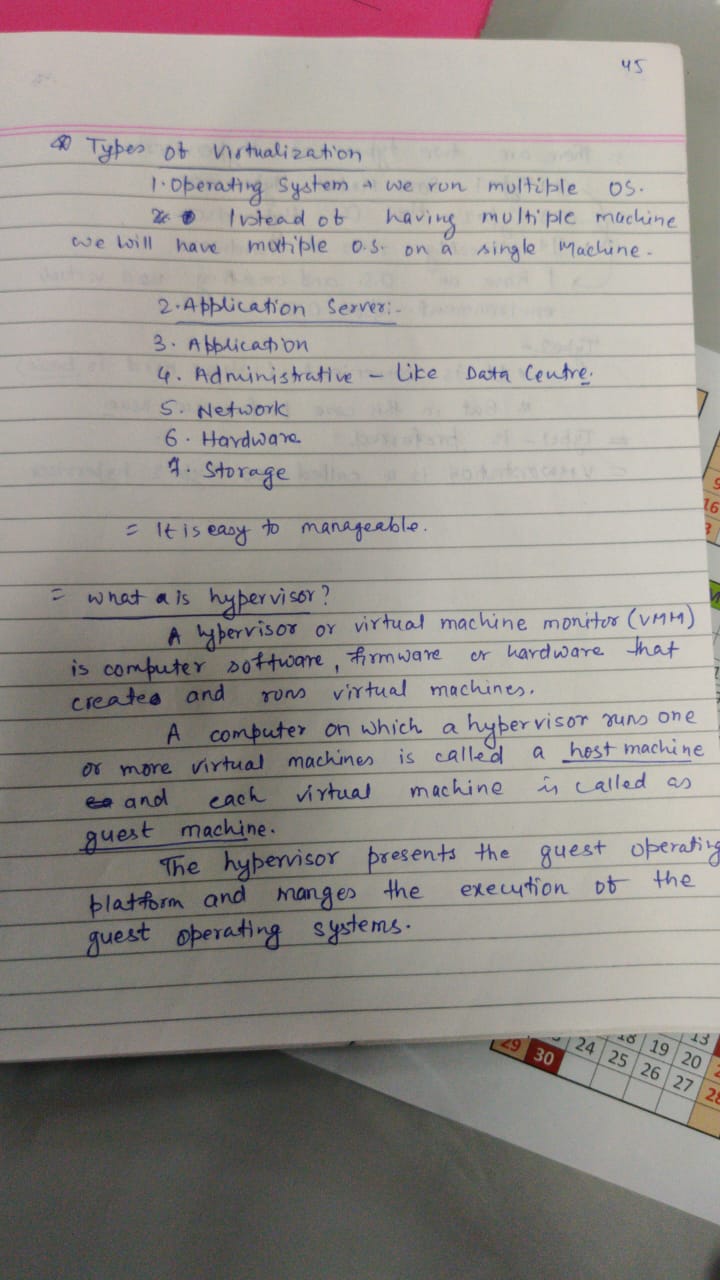 45
Types of Virtualization
1. Operating System → we run multiple OS.
Instead of having multiple machine
we will have multiple O.S. on a single Machine.
2. Application Server:-
3. Application
4. Administrative - Like Data Centre.
5. Network
6. Hardware
7. Storage
= It is easy to manageable.
= what is hypervisor?
A hypervisor or virtual machine monitor (VMM)
is computer software, firmware or hardware that
creates and runs virtual machines.
A computer on which a hypervisor runs one
or more virtual machines is called a host machine
and each virtual machine is called as
guest machine.
The hypervisor presents the guest operating
platform and manges the execution of the
guest operating systems.
16
13
18 19 20
29 30 24 25 26 27 28